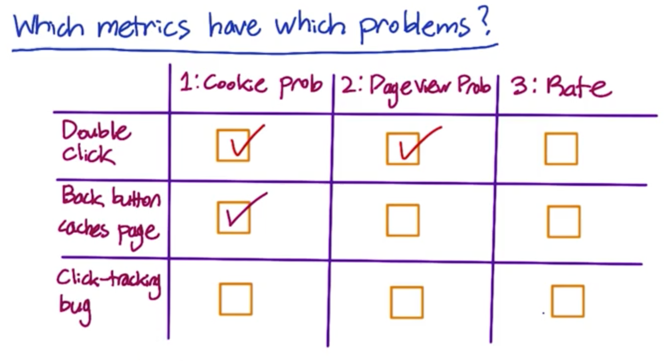 Which metrics have which problems?
1: Cookie prob 2: Pageview Prob 3: Rate
Double
click
Back button
caches page
Click-tracking
bug